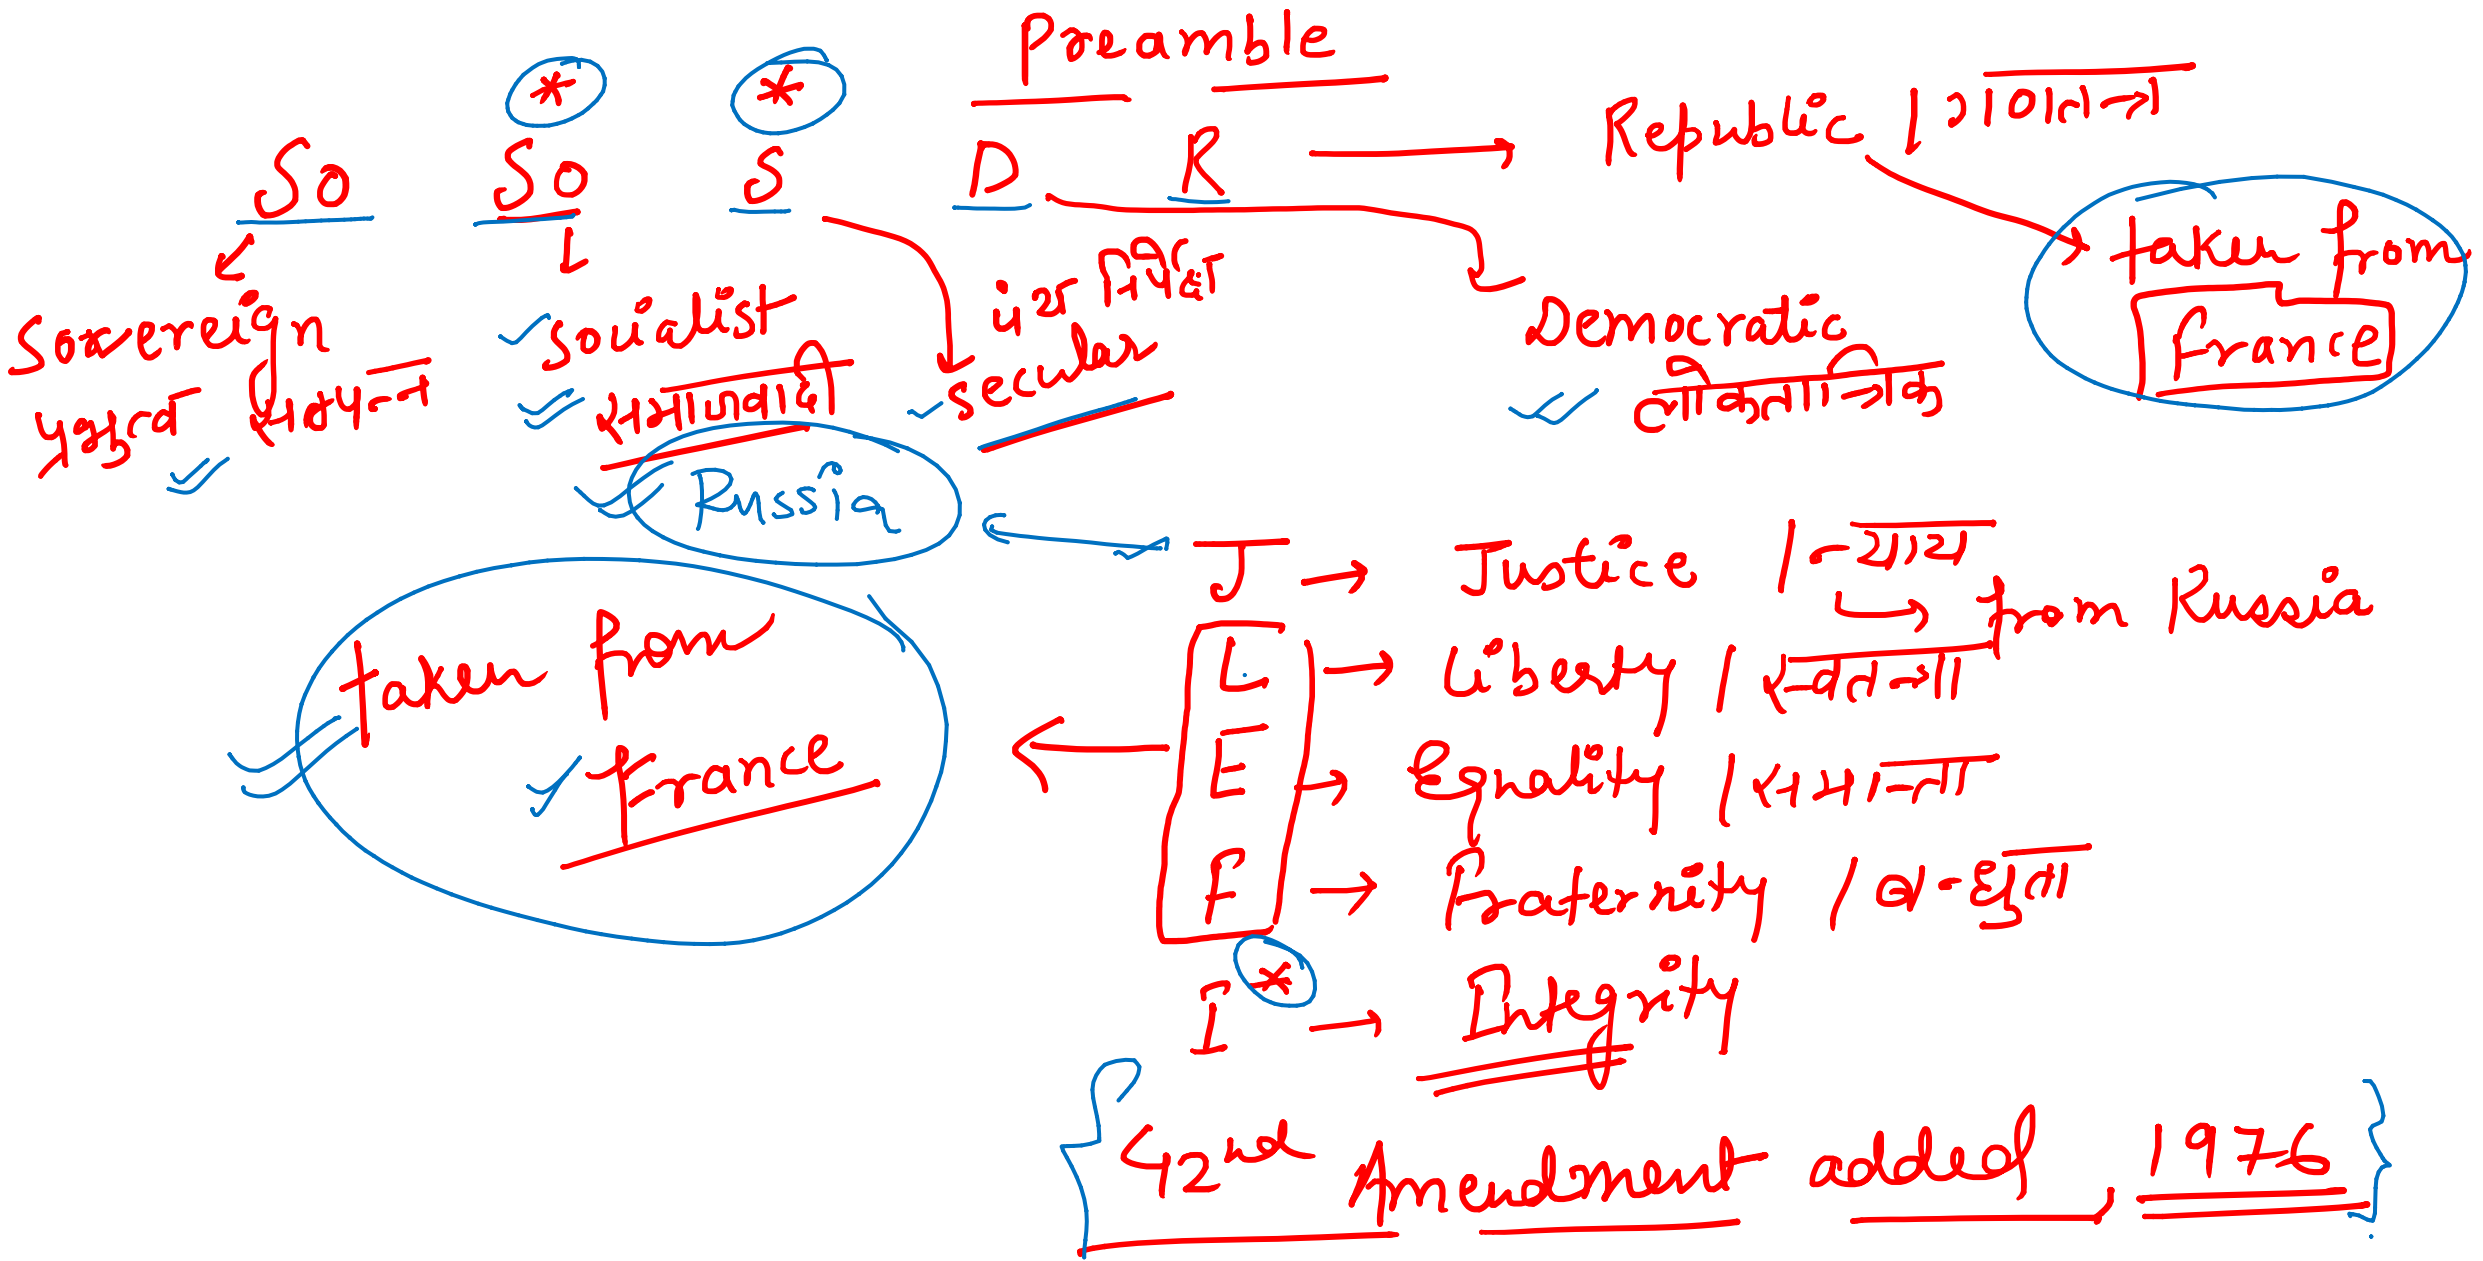 Preamble
* *
So So S D R → Republic | गणतन्त्र
taken from
France
Sovereign
प्रभुत्व सम्पन्न
Socialist
समाजवादी
पंथ निरपेक्ष
Secular
Democratic
लोकतान्त्रिक
Russia
J → Justice | न्याय
→ from Russia
L → Liberty | स्वतन्त्रता
E → Equality | समानता
F → Fraternity | बन्धुता
taken from
France
I * → Integrity
42nd Amendment added, 1976